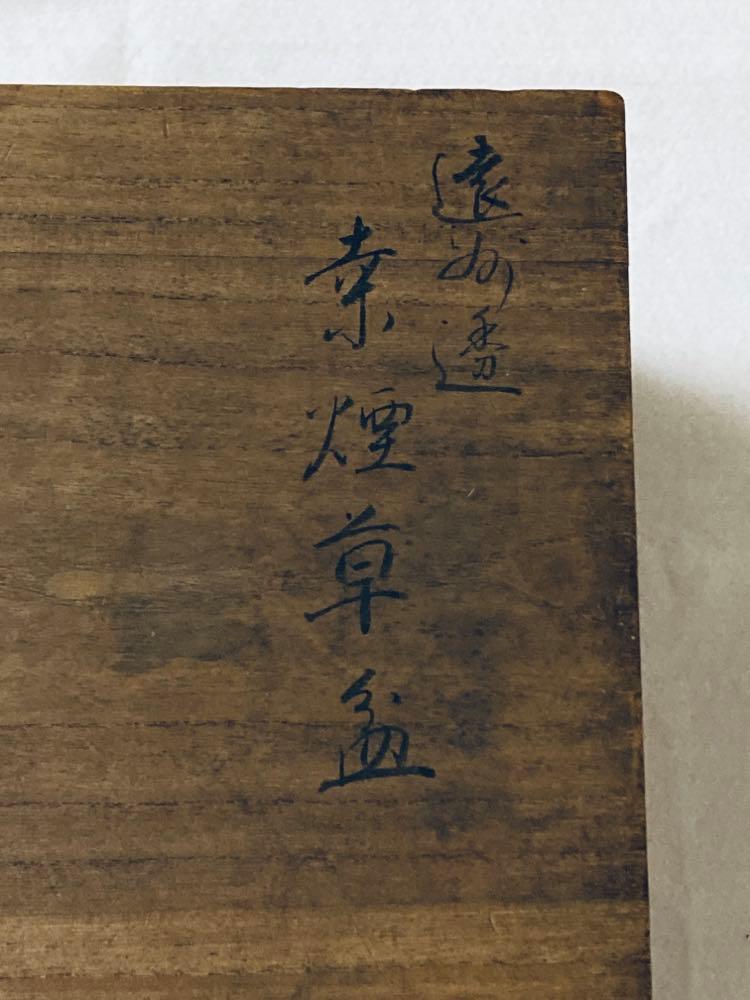 遠州透
桒煙草盆